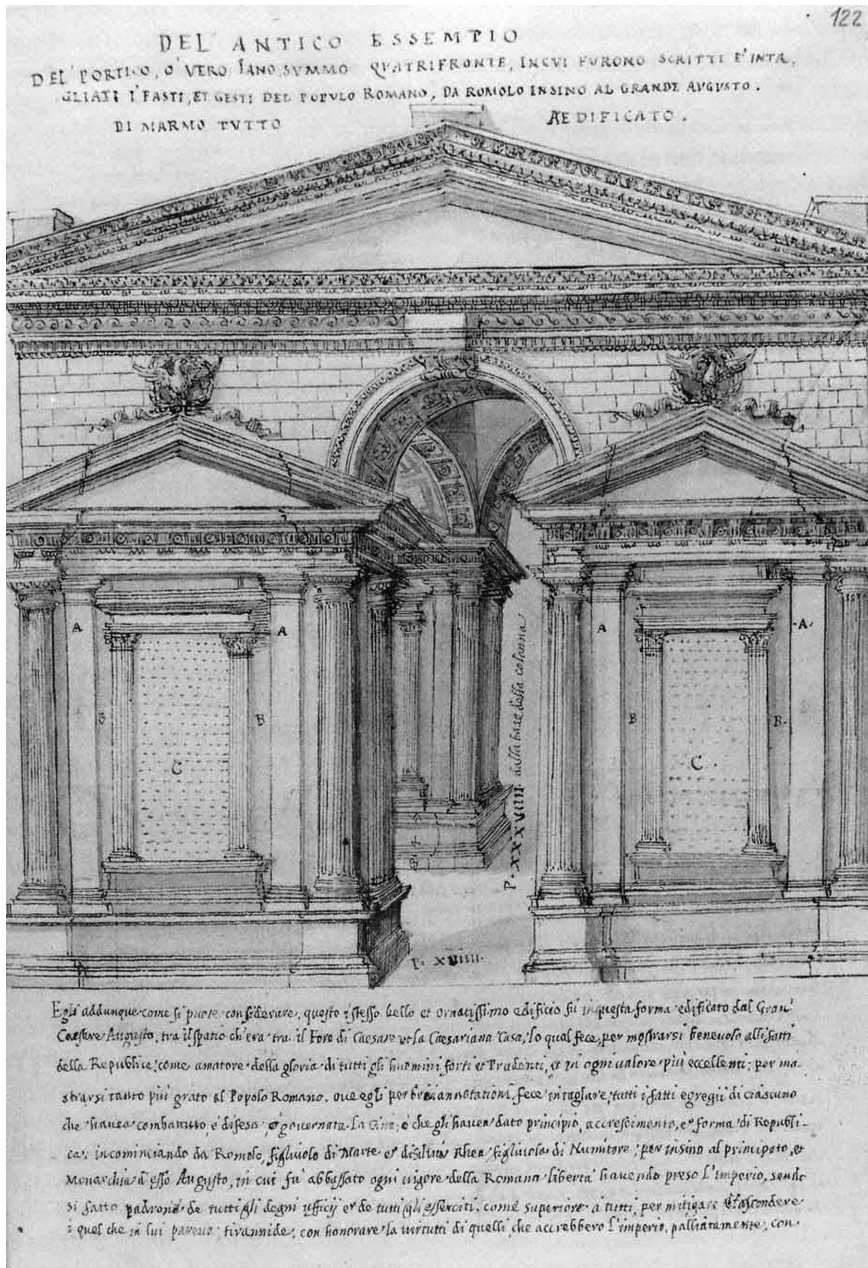 122
DEL ANTICO ESSEMPIO
DEL PORTICO, O' VERO IANO, SUMMO QUATRIFRONTE, IN CUI FURONO SCRITTI E' INTA,
GLIATI I' FASTI, ET GESTI DEL POPULO ROMANO, DA ROMOLO INSINO AL GRANDE AUGUSTO.
DI MARMO TUTTO AEDIFICATO.
A A A A
B B B B
C C
P. XXXVIIII dalla base della colonna
P. XVIIII.
Egli addunque come si puote considerare, questo istesso bello et ornatissimo edificio fù in questa forma edificato dal Gran
Caesere Augusto, tra il spatio ch'era tra il Foro di Caesare et la Caesariana Casa, lo qual fece, per mostrarsi benevolo alli fatti
della Republica, come amatore della gloria di tutti gli huomini forti et Prudenti, et in ogni valore più eccellenti; per mo-
strarsi tanto più grato al Popolo Romano. ove egli per brevi annotationi fece intagliare, tutti i fatti egregii di ciascuno
che havea combattuto, e' difesa, e' governata la Città; e che gli haven dato principio, accrescimento, e' forma di Republi-
ca; incominciando da Romolo, figliuolo di Marte et di Silvia Rhea figliuola di Numitore; per insino al principato, et
Monarchia d'esso Augusto, in cui fù abbassato ogni vigore della Romana libertà havendo preso L'imperio, sendo
si fatto padrone de tutti gli degni ufficij et de tutti gli esserciti, come superiore a tutti, per mitigare et ascondere
quel che in lui pareva tirannide, con honorare la virtuti di quelli, che accrebbero L'imperio, palliatamente, con